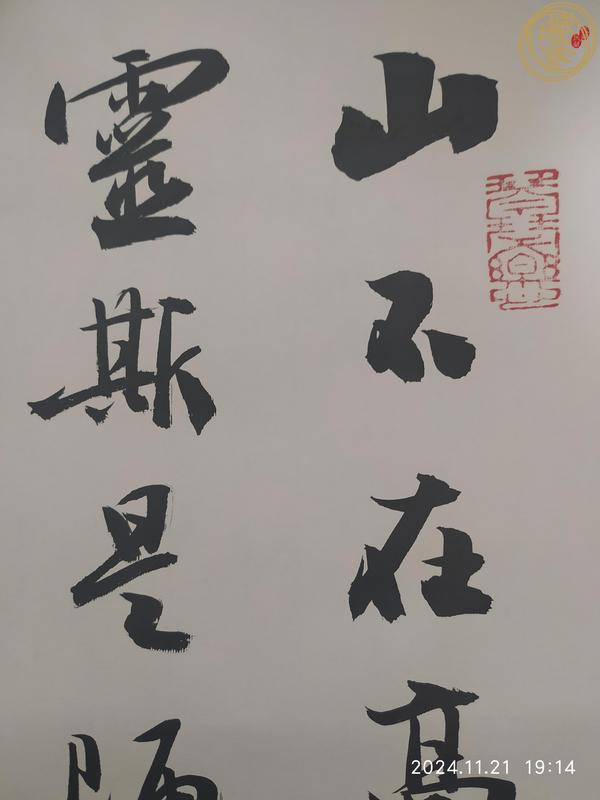 山不在高
靈斯是陋
2024.11.21 19:14